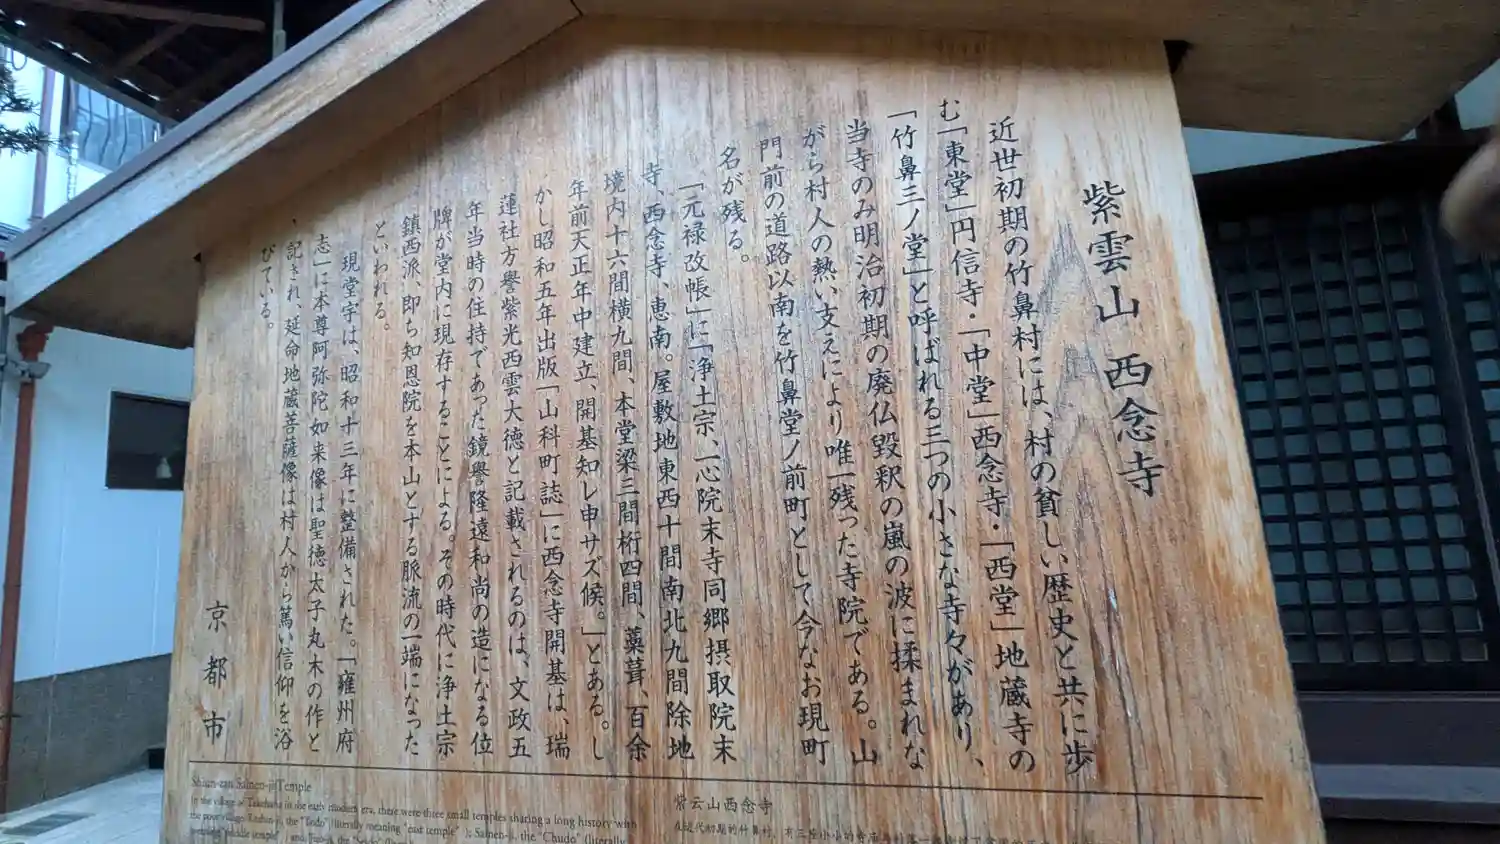 紫雲山 西念寺
近世初期の竹鼻村には、村の貧しい歴史と共に歩
む「東堂」円信寺・「中堂」西念寺・「西堂」地蔵寺の
「竹鼻三ノ堂」と呼ばれる三つの小さな寺々があり、
当寺のみ明治初期の廃仏毀釈の嵐の波に揉まれな
がら村人の熱い支えにより唯一残った寺院である。山
門前の道路以南を竹鼻堂ノ前町として今なお現町
名が残る。
「元禄改帳」に「浄土宗、一心院末寺同郷摂取院末
寺、西念寺、恵南。屋敷地東西十間南北九間除地
境内十六間横九間、本堂梁三間桁四間、藁葺、百余
年前天正年中建立、開基知レ申サズ候。」とある。し
かし昭和五年出版「山科町誌」に西念寺開基は、瑞
蓮社方譽紫光西雲大徳と記載されるのは、文政五
年当時の住持であった鏡譽隆遠和尚の造になる位
牌が堂内に現存することによる。その時代に浄土宗
鎮西派、即ち知恩院を本山とする脈流の一端になった
といわれる。
現堂宇は、昭和十三年に整備された。「雍州府
志」に本尊阿弥陀如来像は聖徳太子丸木の作と
記され、延命地蔵菩薩像は村人から篤い信仰を浴
びている。
京都市
Shiun-zan Sainen-ji Temple
In the village of Takehana in the early modern era, there were three small temples sharing a long history with
the poor village: Enshin-ji, the "Todo" (literally meaning "east temple"); Sainen-ji, the "Chudo" (literally
紫云山西念寺